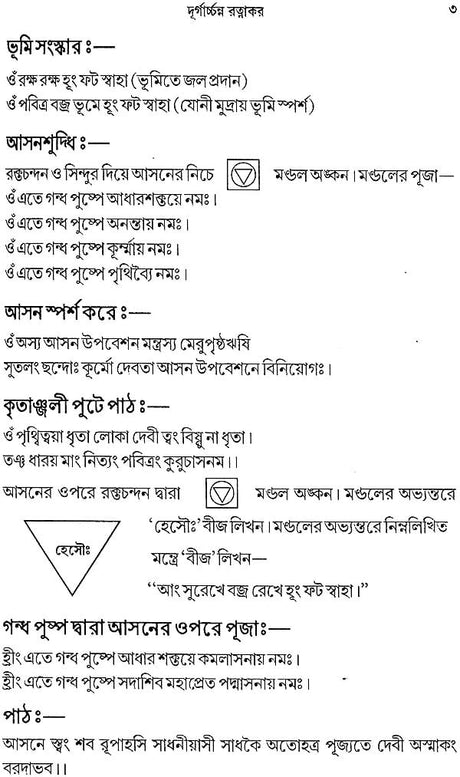 দূর্গার্চ্চন্ন রত্নাকর ৩
ভূমি সংস্কার ঃ—
ওঁ রক্ষ রক্ষ হূং ফট স্বাহা (ভূমিতে জল প্রদান)
ওঁ পবিত্র বজ্র ভূমে হূং ফট স্বাহা (যোনী মুদ্রায় ভূমি স্পর্শ)
আসনশুদ্ধি ঃ—
রক্তচন্দন ও সিন্দুর দিয়ে আসনের নিচে মণ্ডল অঙ্কন। মণ্ডলের পূজা—
ওঁ এতে গন্ধ পুষ্পে আধারশক্তয়ে নমঃ।
ওঁ এতে গন্ধ পুষ্পে অনন্তায় নমঃ।
ওঁ এতে গন্ধ পুষ্পে কূর্ম্মায় নমঃ।
ওঁ এতে গন্ধ পুষ্পে পৃথিব্যৈ নমঃ।
আসন স্পর্শ করে ঃ—
ওঁ অস্য আসন উপবেশন মন্ত্রস্য মেরুপৃষ্ঠঋষি
সুতলং ছন্দোঃ কূর্মো দেবতা আসন উপবেশনে বিনিয়োগঃ।
কৃতাঞ্জলী পুটে পাঠ ঃ—
ওঁ পৃথ্বিত্বয়া ধৃতা লোকা দেবী ত্বং বিষ্ণু না ধৃতা।
তঞ্চ ধারয় মাং নিত্যং পবিত্রং কুরুচাসনম।।
আসনের ওপরে রক্তচন্দন দ্বারা মণ্ডল অঙ্কন। মণ্ডলের অভ্যন্তরে
‘হেসৌঃ’ বীজ লিখন। মণ্ডলের অভ্যন্তরে নিম্নলিখিত
হেসৌঃ
মন্ত্রে ‘বীজ’ লিখন—
“আং সুরেখে বজ্র রেখে হূং ফট স্বাহা।”
গন্ধ পুষ্প দ্বারা আসনের ওপরে পূজাঃ—
হ্রীং এতে গন্ধ পুষ্পে আধার শক্তয়ে কমলাসনায় নমঃ।
হ্রীং এতে গন্ধ পুষ্পে সদাশিব মহাপ্রেত পদ্মাসনায় নমঃ।
পাঠঃ—
আসনে ত্বং শব রূপাহসি সাধনীয়াসী সাধকৈ অতোহত্র পূজ্যতে দেবী অস্মাকং
বরদাভব।।